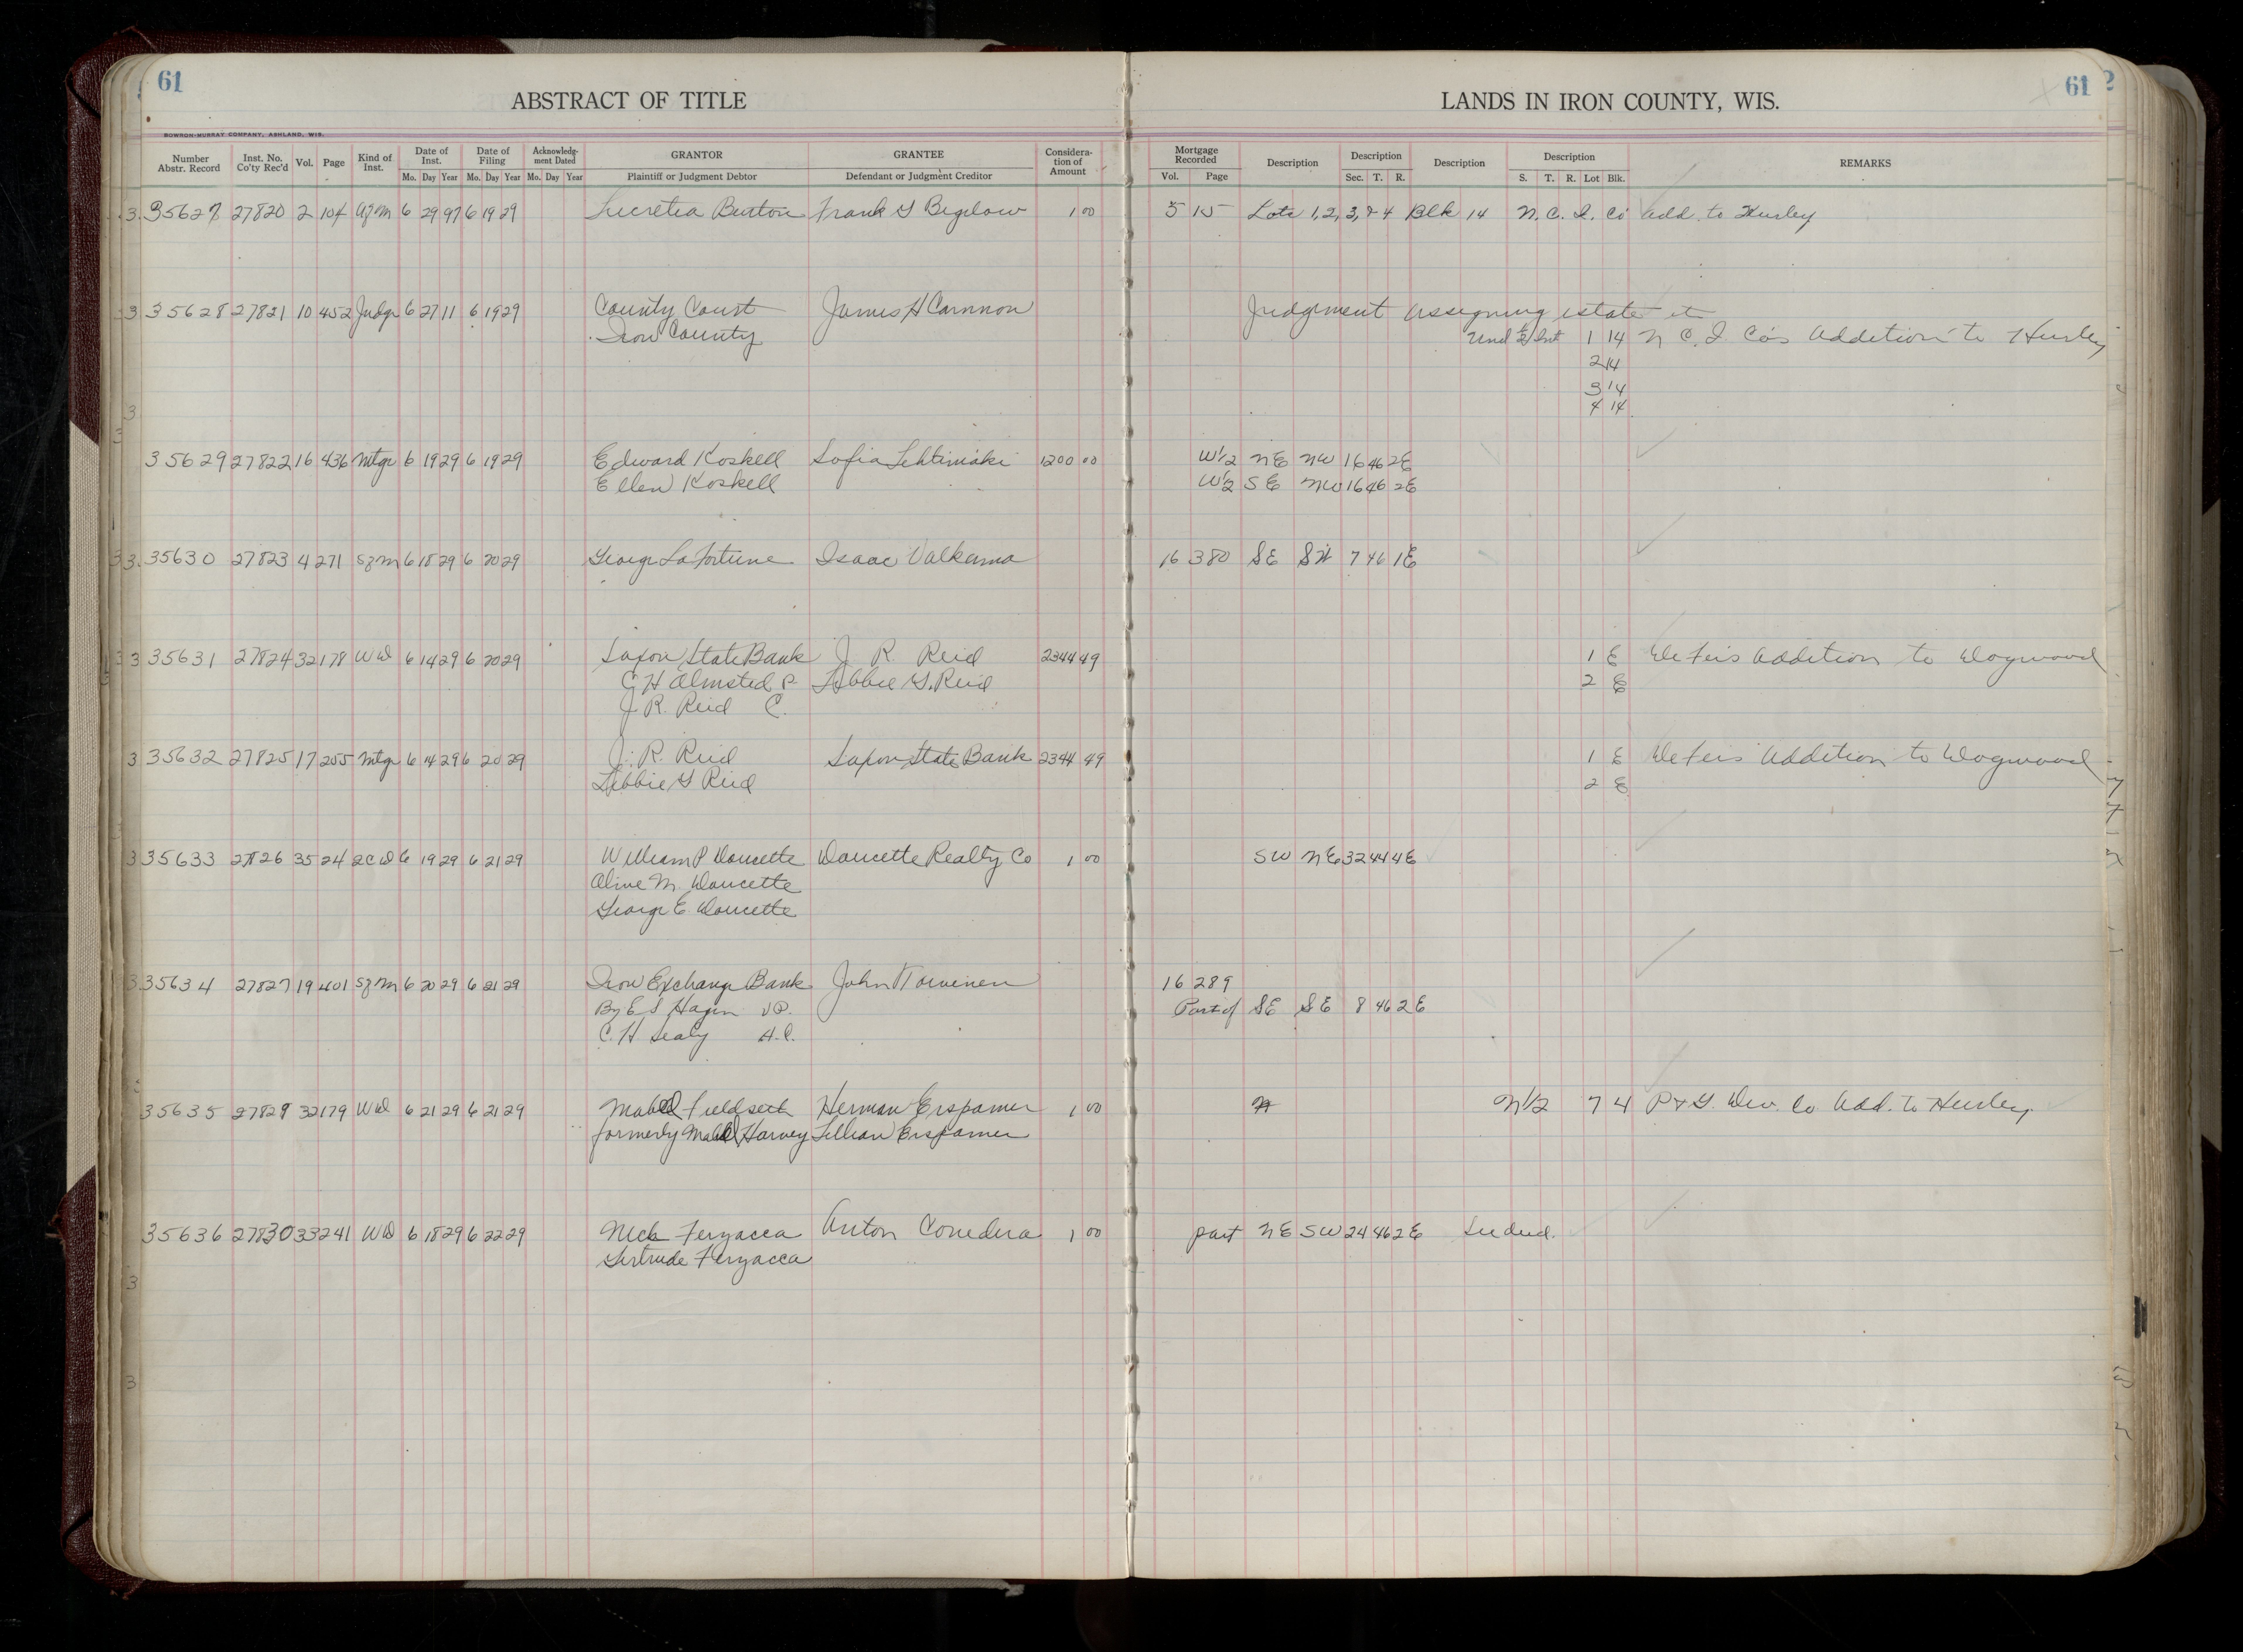 61
ABSTRACT OF TITLE
LANDS IN IRON COUNTY, WIS.
61
BOWRON-MURRAY COMPANY, ASHLAND, WIS.
Number Abstr. Record Inst. No. Co'ty Rec'd Vol. Page Kind of Inst. Date of Inst. Date of Filing Acknowledg-ment Dated GRANTOR GRANTEE Considera-tion of Amount Mortgage Recorded Description Description Description Description REMARKS
Mo. Day Year Mo. Day Year Mo. Day Year Plaintiff or Judgment Debtor Defendant or Judgment Creditor Vol. Page Sec. T. R. S. T. R. Lot Blk.
35627 27820 2 104 Agm 6 29 97 6 19 29 Lucretia Burton Frank G Bigelow 1 00 5 15 Lots 1, 2, 3, & 4 Blk 14 N. C. I. Co add. to Hurley
35628 27821 10 452 Judgt 6 27 11 6 19 29 County Court James H Cannon Judgment assigning estate etc
Iron County Und 1/2 Int 1 14 N C. I. Co's Addition to Hurley
2 14
3 14
4 14
35629 27822 16 436 Mtge 6 19 29 6 19 29 Edward Koskell Sofia Lehtimaki 1200 00 W1/2 NE NW 16 46 2E
Ellen Koskell W1/2 SE NW 16 46 2E
35630 27823 4 271 Szm 6 18 29 6 20 29 George LaFortune Isaac Valkama 16 380 SE SW 7 46 1E
35631 27824 32 178 WD 6 14 29 6 20 29 Saxon State Bank J. R. Reid 2344 49 1 E Addition to Dogwood
C H Olmsted P Libbie G. Reid 2 E
J. R. Reid C.
35632 27825 17 255 Mtge 6 14 29 6 20 29 J. R. Reid Saxon State Bank 2344 49 1 E Addition to Dogwood
Libbie G Reid 2 E
35633 27826 35 24 2CD 6 19 29 6 21 29 William P Doucette Doucette Realty Co 1 00 SW NE 32 44 4E
Olive M. Doucette
George E. Doucette
35634 27827 19 401 Szm 6 20 29 6 21 29 Iron Exchange Bank John 16 289
By E S Hagen VP. Part of SE SE 8 46 2E
C. H Sealy A.C.
35635 32 179 WD 6 21 29 6 21 29 Mabel Herman Erspamer 1 00 N1/2 7 4 P & G. Dev. Co Add. to Hurley
formerly Mabel Harvey Lillian Erspamer
35636 27830 33 241 WD 6 18 29 6 22 29 Nick Feryacca Anton Conedera 1 00 part NE SW 24 46 2E See deed.
Gertrude Feryacca